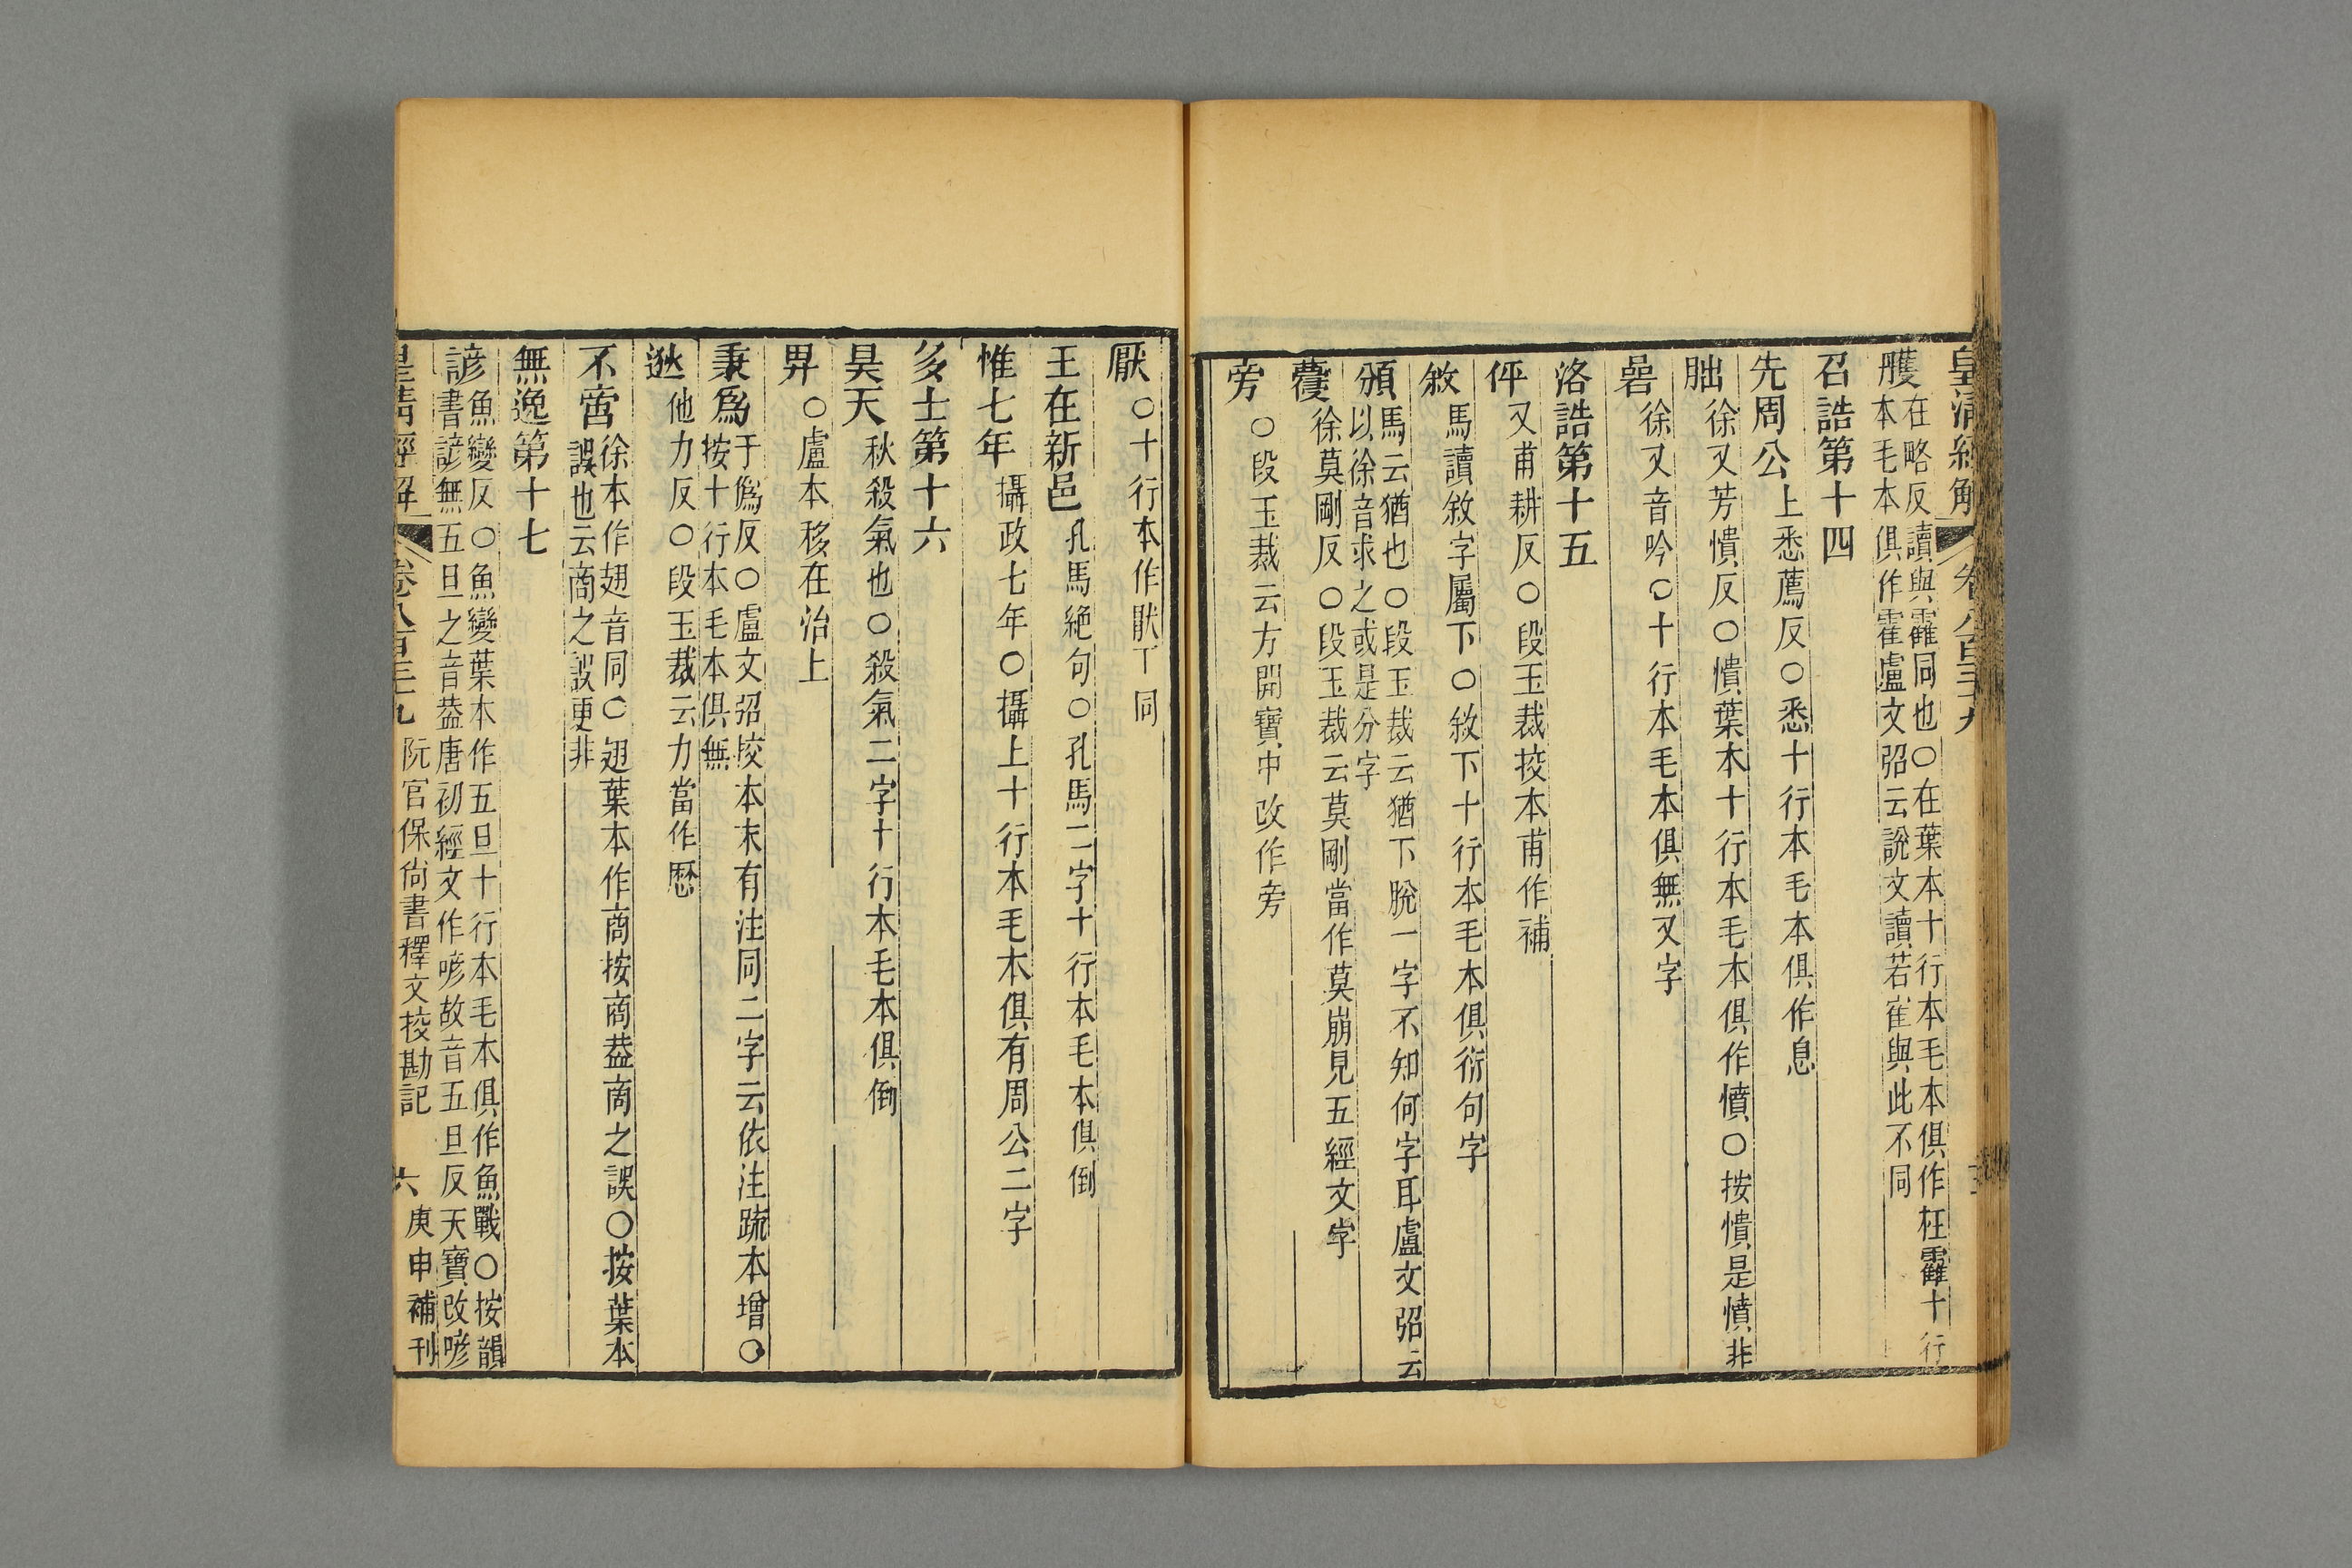 皇清經解 卷八百三十九
雘在略反讀與靃同也〇在葉本十行本毛本俱作枉靃十行
本毛本俱作霍盧文弨云說文讀若隺與此不同
召誥第十四
先周公上悉薦反〇悉十行本毛本俱作息
朏徐又芳憒反〇憒葉本十行本毛本俱作憤〇按憒是憤非
嵒徐又音吟〇十行本毛本俱無又字
洛誥第十五
伻又甫耕反〇段玉裁挍本甫作補
敘馬讀敘字屬下〇敘下十行本毛本俱衍句字
頒馬云猶也〇段玉裁云猶下脫一字不知何字耳盧文弨云
以徐音求之或是分字
㝱徐莫剛反〇段玉裁云莫剛當作莫崩見五經文字
旁〇段玉裁云方開寶中改作旁
厭〇十行本作猒下同
王在新邑孔馬絕句〇孔馬二字十行本毛本俱倒
惟七年攝政七年〇攝上十行本毛本俱有周公二字
多士第十六
昊天秋殺氣也〇殺氣二字十行本毛本俱倒
畀〇盧本移在治上
秉爲于僞反〇盧文弨挍本末有注同二字云依注疏本增〇
按十行本毛本俱無
逖他力反〇段玉裁云力當作歷
不啻徐本作翅音同〇翅葉本作商按商葢啇之誤〇按葉本
誤也云商之誤更非
無逸第十七
諺魚變反〇魚變葉本作五旦十行本毛本俱作魚戰〇按韻
書諺無五旦之音葢唐初經文作喭故音五旦反天寶改喭
皇清經解 卷八百三十九 阮宮保尚書釋文挍勘記 六 庚申補刊